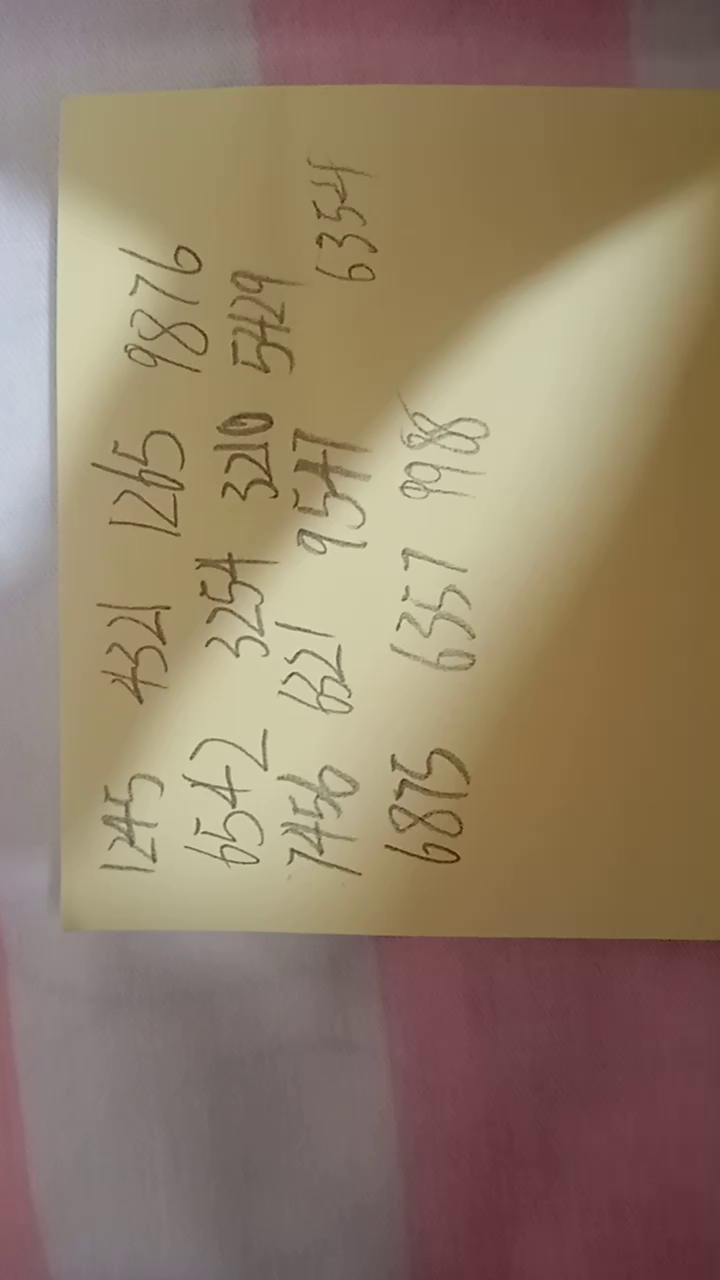 1245 4321 1265 9876
6542 3254 3210 5429
7456 6321 9547 6354
6875 6357 9986